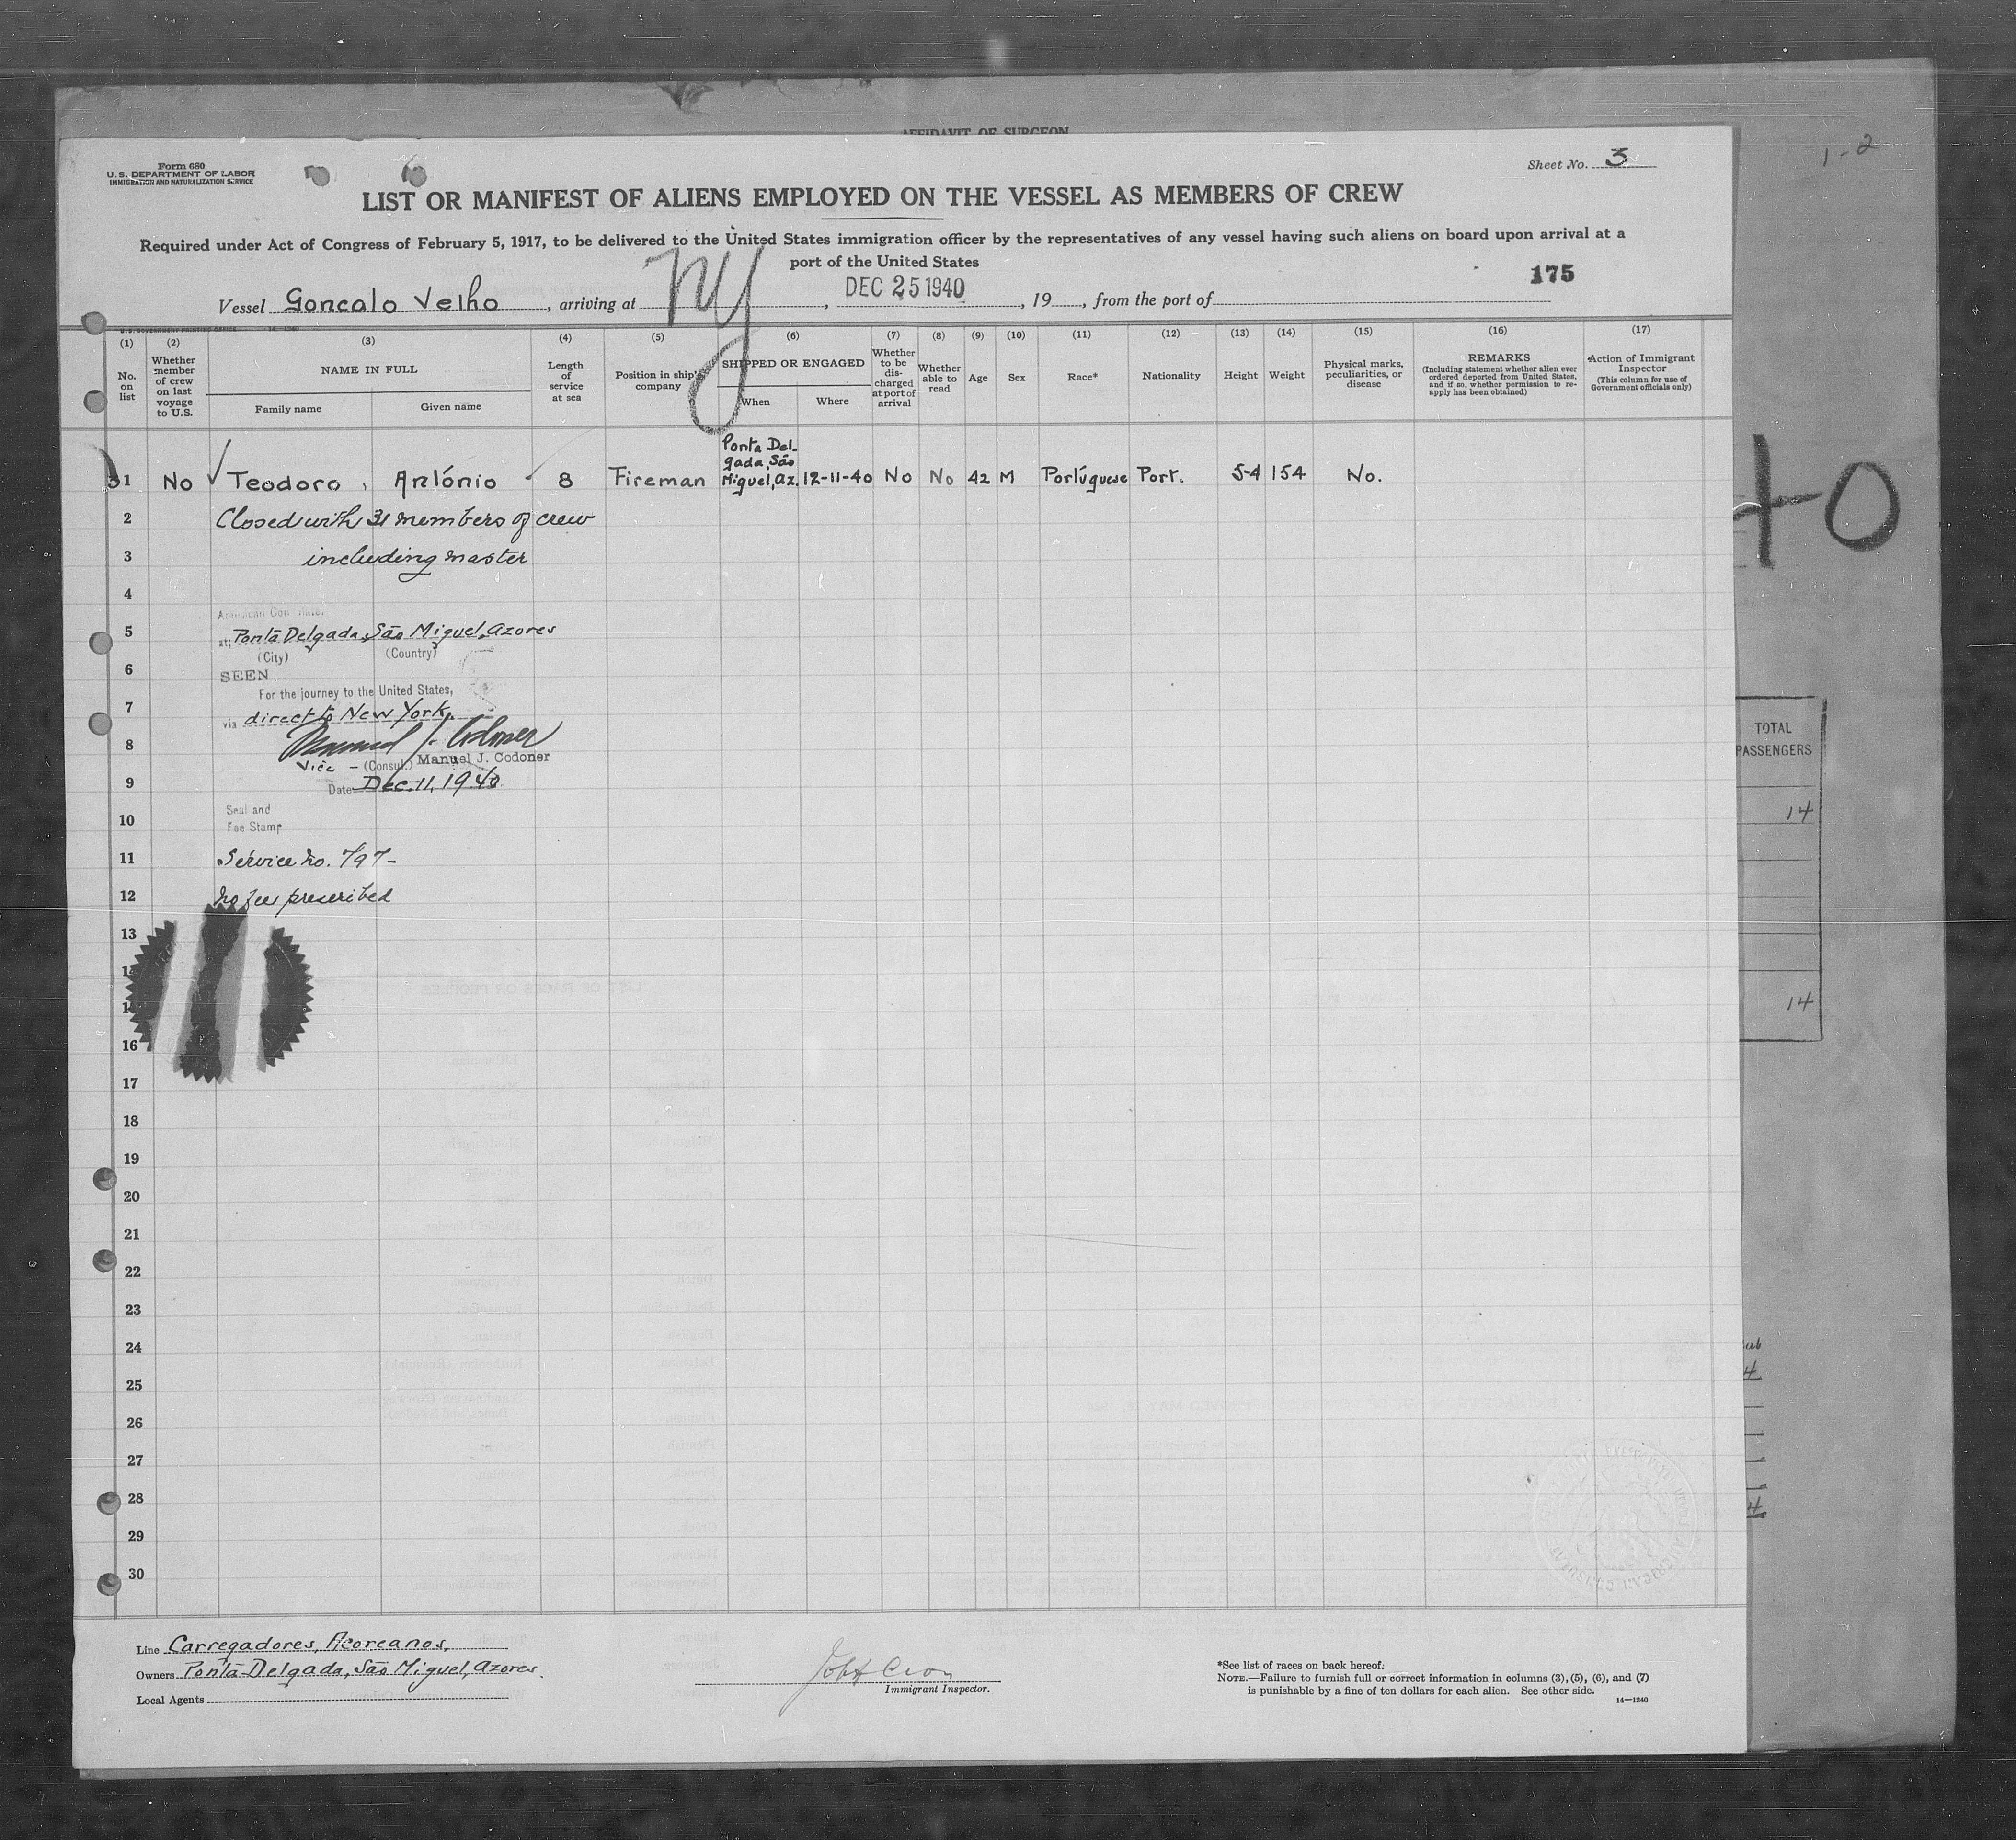 AFFIDAVIT OF SURGEON
1-2
Form 680
U. S. DEPARTMENT OF LABOR
IMMIGRATION AND NATURALIZATION SERVICE
Sheet No. 3
LIST OR MANIFEST OF ALIENS EMPLOYED ON THE VESSEL AS MEMBERS OF CREW
Required under Act of Congress of February 5, 1917, to be delivered to the United States immigration officer by the representatives of any vessel having such aliens on board upon arrival at a
port of the United States
175
Vessel Goncalo Velho, arriving at NY, DEC 25 1940, 19, from the port of
U.S. GOVERNMENT PRINTING OFFICE 14-1240
(1) (2) (3) (4) (5) (6) (7) (8) (9) (10) (11) (12) (13) (14) (15) (16) (17)
No. on list
Whether member of crew on last voyage to U.S.
NAME IN FULL
Family name
Given name
Length of service at sea
Position in ship's company
SHIPPED OR ENGAGED
When
Where
Whether to be discharged at port of arrival
Whether able to read
Age
Sex
Race*
Nationality
Height
Weight
Physical marks, peculiarities, or disease
REMARKS
(Including statement whether alien ever ordered deported from United States, and if so, whether permission to re-apply has been obtained)
Action of Immigrant Inspector
(This column for use of Government officials only)
31 No Teodoro, António 8 Fireman Ponta Delgada, São Miguel, Az. 12-11-40 No No 42 M Portúguese Port. 5-4 154 No.
2 Closed with 31 members of crew
3 including master
4
American Consulate
5 at Ponta Delgada, São Miguel, Azores
(City) (Country)
6 SEEN
For the journey to the United States,
7 via direct to New York.
8 Manuel J. Codoner
Vice - (Consul.) Manuel J. Codoner
9 Date Dec. 11, 1940
10 Seal and
Fee Stamp
11 Service No. 797-
12 No fee prescribed
13
16
17
18
19
20
21
22
23
24
25
26
27
28
29
30
40
TOTAL
PASSENGERS
14
14
Line Carregadores, Acoreanos,
Owners Ponta-Delgada, São Miguel, Azores.
Local Agents
Immigrant Inspector.
*See list of races on back hereof.
NOTE.—Failure to furnish full or correct information in columns (3), (5), (6), and (7)
is punishable by a fine of ten dollars for each alien. See other side.
14—1240